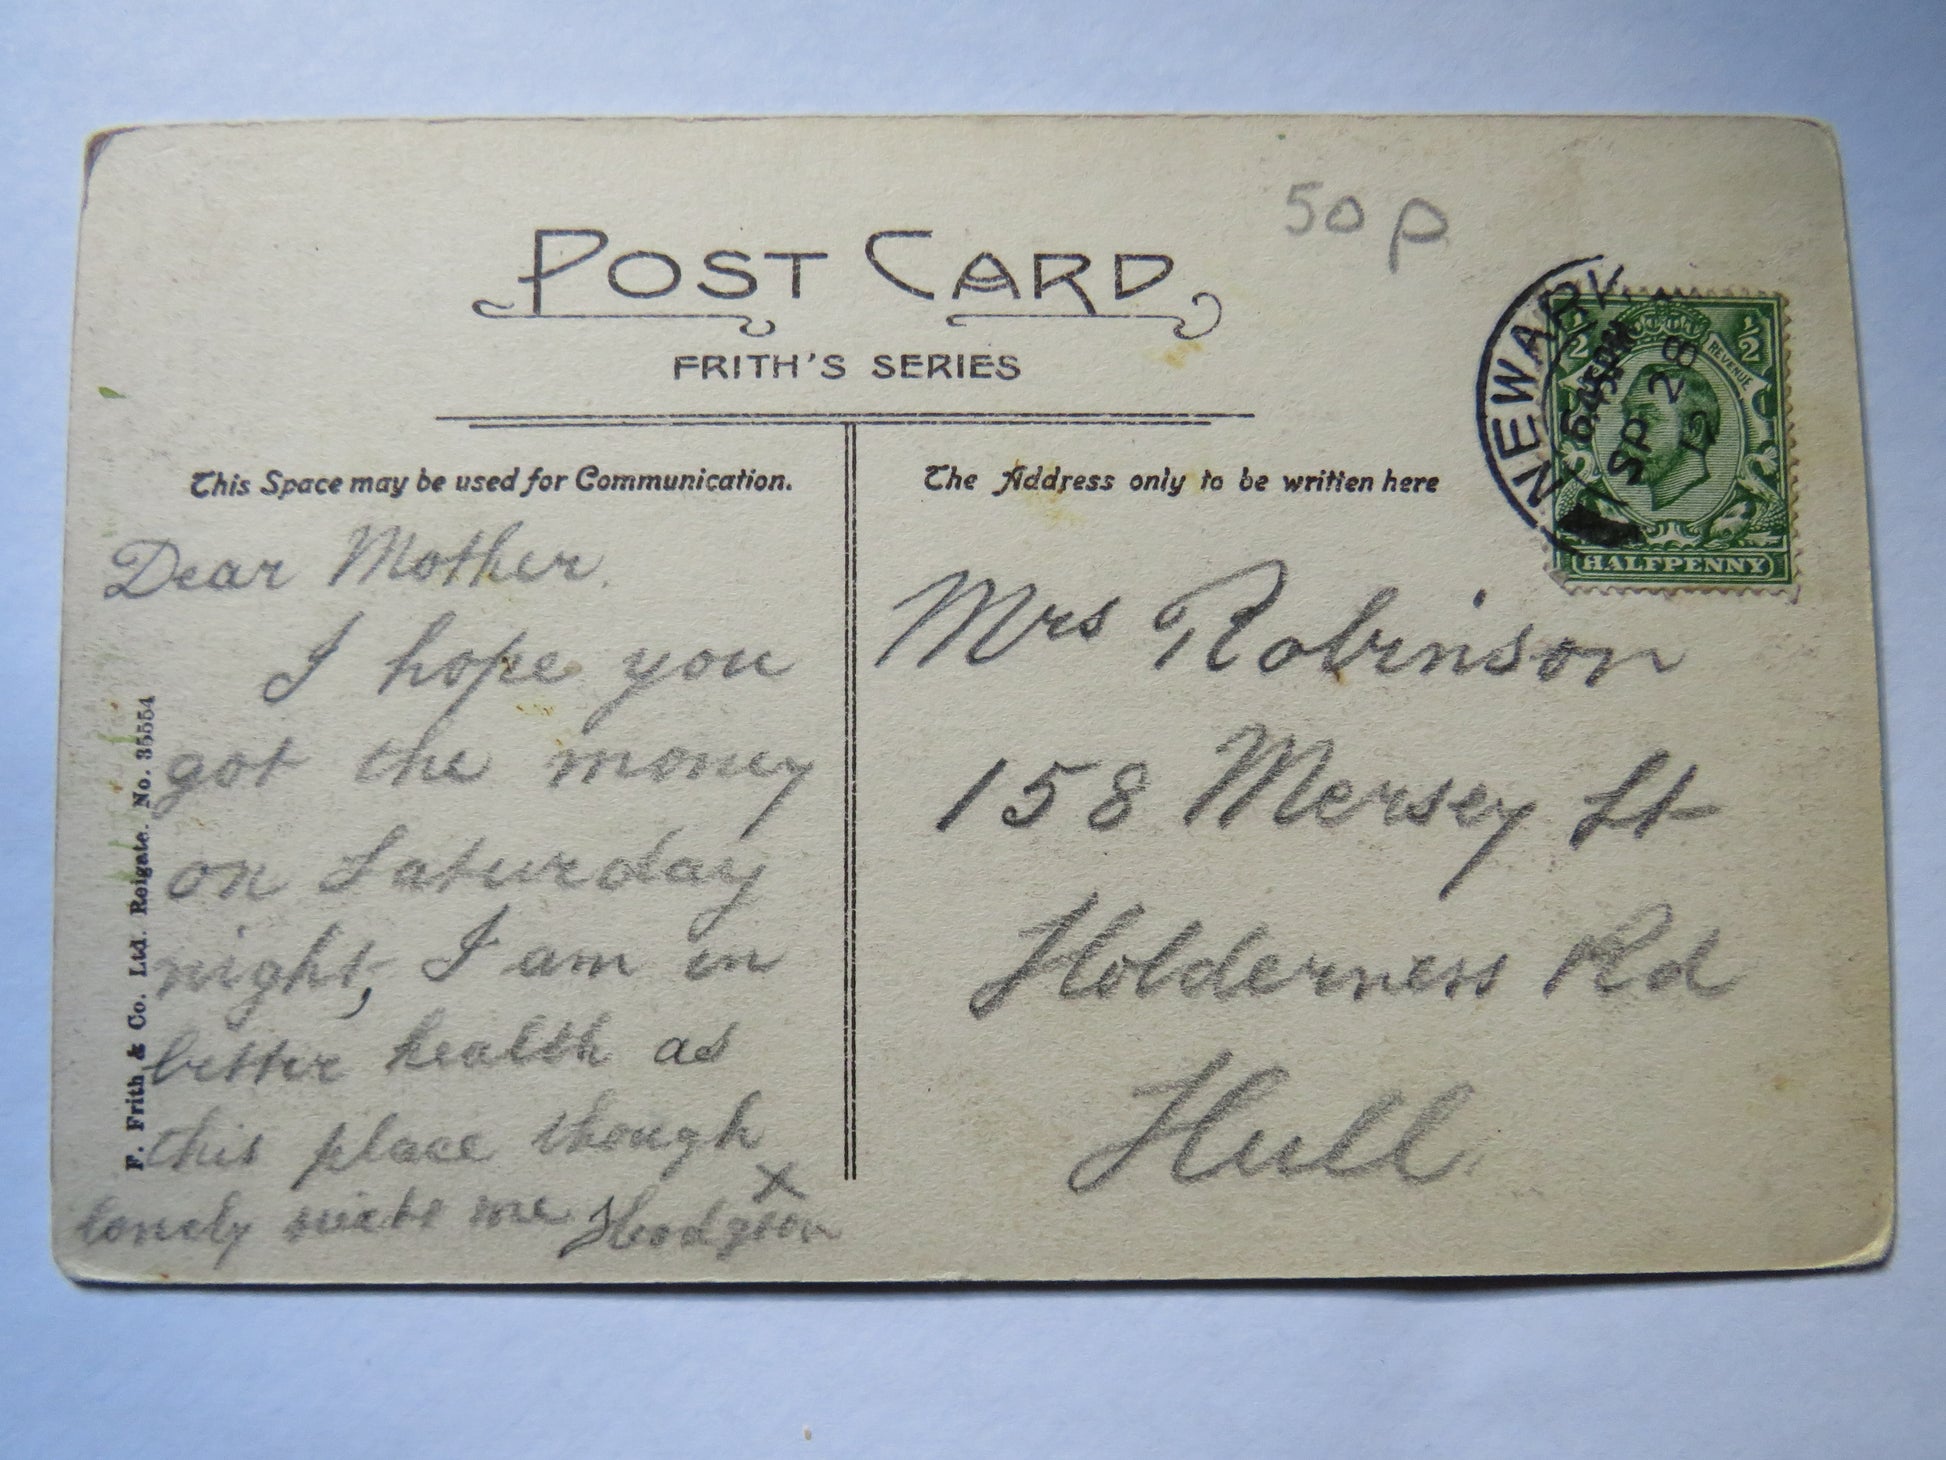 50p
POST CARD
FRITH'S SERIES
NEWARK
6.45PM
SP 28
12
½ REVENUE ½
HALFPENNY
This Space may be used for Communication.
Dear Mother.
I hope you
got the money
on Saturday
night, I am in
better health as
this place though
lonely suits me Hodgson
X
The Address only to be written here
Mrs Robinson
158 Mersey St
Holderness Rd
Hull
F. Frith & Co. Ltd. Reigate. No. 35554